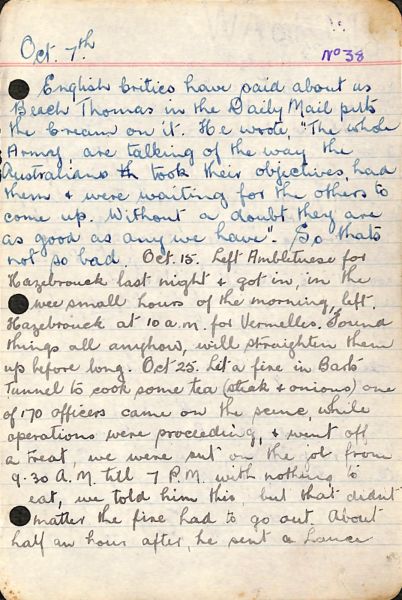 Oct. 7th
No 38
English Critics have said about us
Beach Thomas in the Daily Mail puts
the Cream on it. He wrote, "The whole
Army, are talking of the way the
Australians took their objectives, had
them & were waiting for the others to
come up. Without a doubt they are
as good as any we have". So thats
not so bad. Oct. 15. Left Ambleteuse for
Hazebrouck last night & got in, in the
wee small hours of the morning, left.
Hazebrouck at 10 a.m. for Vermelles. Found
things all anyhow, will straighten them
up before long. Oct 25. Lit a fire in Barts
Tunnel to cook some tea (steak & onions) one
of 170 officers came on the scene, while
operations were proceeding, & went off
a treat, we were out on the job from
9.30 A.M. till 7 P.M. with nothing to
eat, we told him this, but that didnt
matter the fire had to go out. About
half an hour after, he sent a Lance